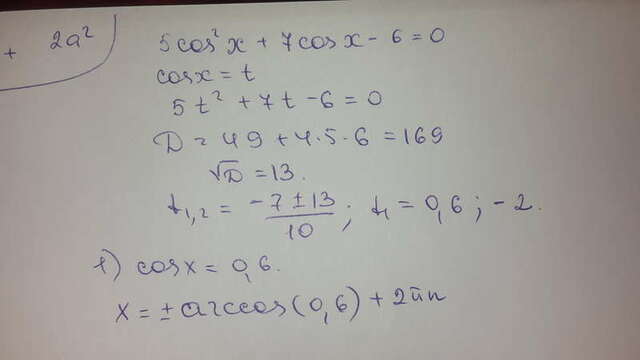 + 2a²
5cos²x + 7cosx - 6 = 0
cosx = t
5t² + 7t - 6 = 0
D = 49 + 4·5·6 = 169
√D = 13.
t₁,₂ = (-7 ± 13)/10 ; t₁ = 0,6 ; -2.
1) cosx = 0,6.
x = ± arccos(0,6) + 2πn